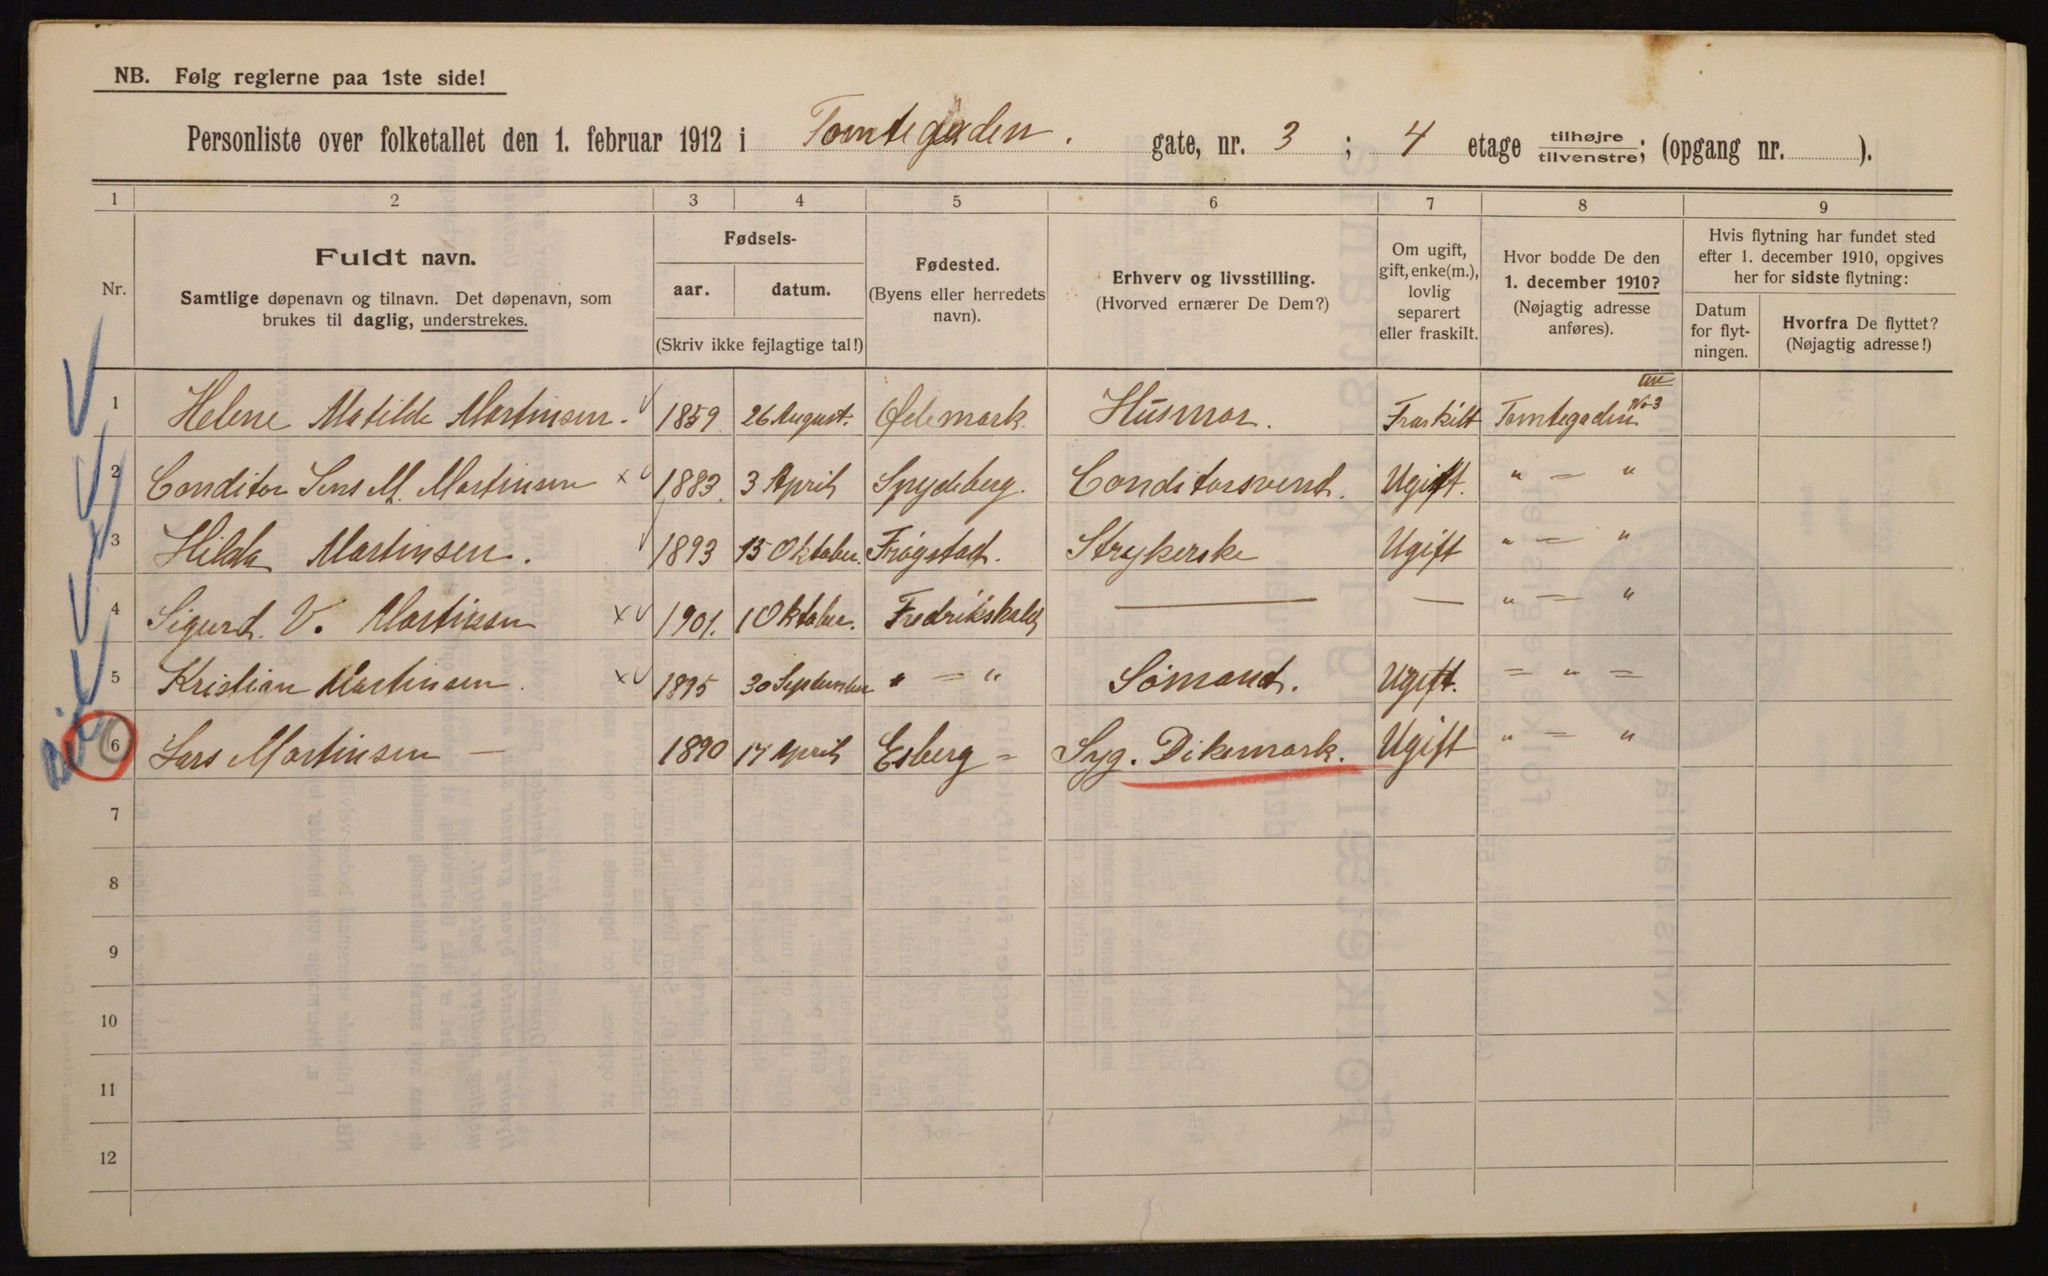 NB. Følg reglerne paa 1ste side!
Personliste over folketallet den 1. februar 1912 i Tomtegaden. gate, nr. 3; 4 etage tilhøjre/tilvenstre; (opgang nr. ).
1 2 3 4 5 6 7 8 9
Nr.
Fuldt navn.
Samtlige døpenavn og tilnavn. Det døpenavn, som
brukes til daglig, understrekes.
Fødsels-
aar. datum.
(Skriv ikke fejlagtige tal!)
Fødested.
(Byens eller herredets
navn).
Erhverv og livsstilling.
(Hvorved ernærer De Dem?)
Om ugift,
gift, enke(m.),
lovlig
separert
eller fraskilt.
Hvor bodde De den
1. december 1910?
(Nøjagtig adresse
anføres).
Hvis flytning har fundet sted
efter 1. december 1910, opgives
her for sidste flytning:
Datum
for flyt-
ningen.
Hvorfra De flyttet?
(Nøjagtig adresse!)
1 Helene Matilde Martinsen. 1859 26 August. Ødemark. Husmor. Fraskilt Tomtegaden No 3
2 Conditor Jens M. Martinsen 1883. 3 April Spydeberg. Conditorsvend. Ugift. " — "
3 Hilda Martinsen. 1893 15 Oktober. Frøgstad. Strykerske Ugift " — "
4 Sigurd. V. Martinsen 1901. 1 Oktober. Fredrikshald — — " — "
5 Kristian Martinsen. 1895 30 September " — " Sømand. Ugift. — " —
6 Lars Martinsen — 1890 17 April Esberg — Syg. Dikemark. Ugift " — "
7
8
9
10
11
12